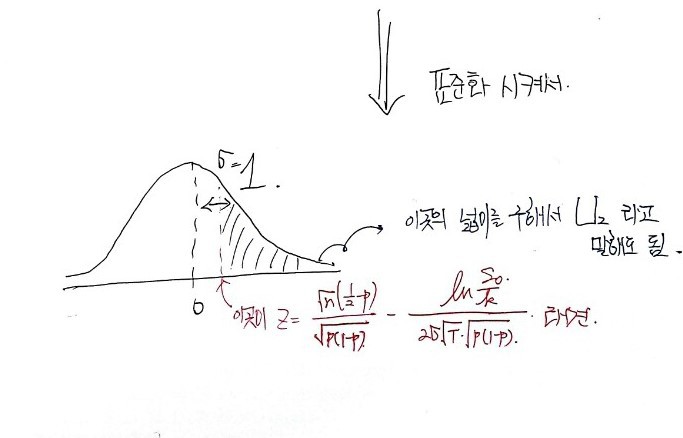 표준화 시켜서.
σ=1.
이곳의 넓이를 구해서 U₂ 라고
말해도 됨.
0
이곳이 z = \frac{\sqrt{n}(\frac{1}{2}-p)}{\sqrt{p(1-p)}} - \frac{\ln\frac{S_0}{k}}{2σ\sqrt{T}\cdot\sqrt{p(1-p)}} 라면.